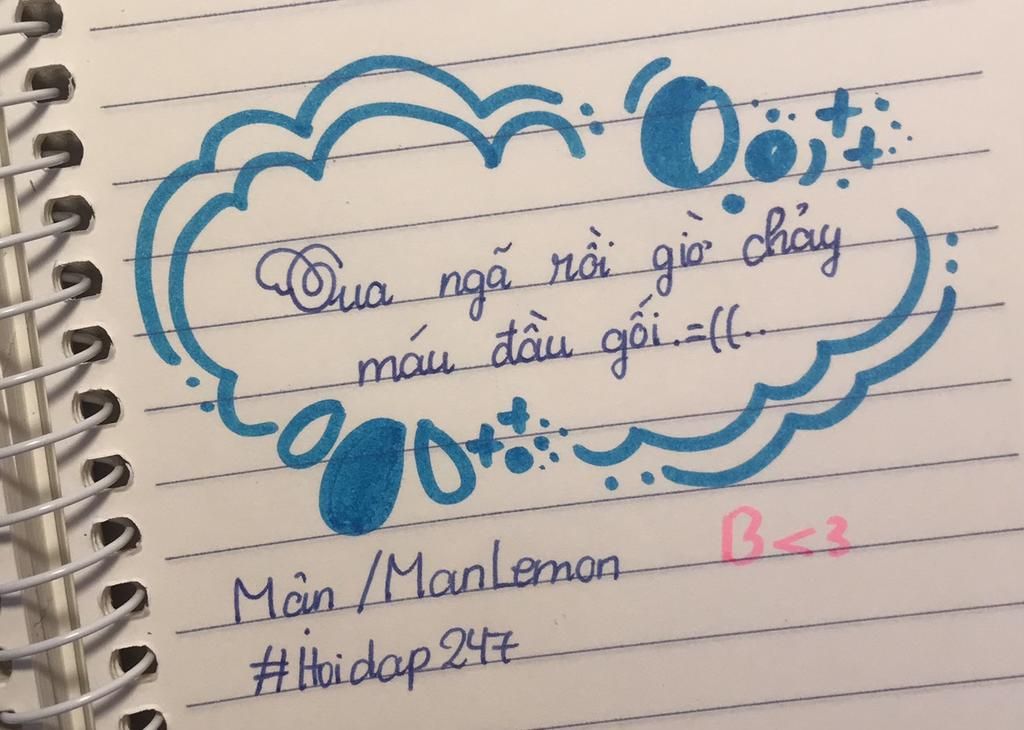 Qua ngã rồi giờ chảy
máu đầu gối.=((..
B<3
Mân /ManLemon
#Hoidap247